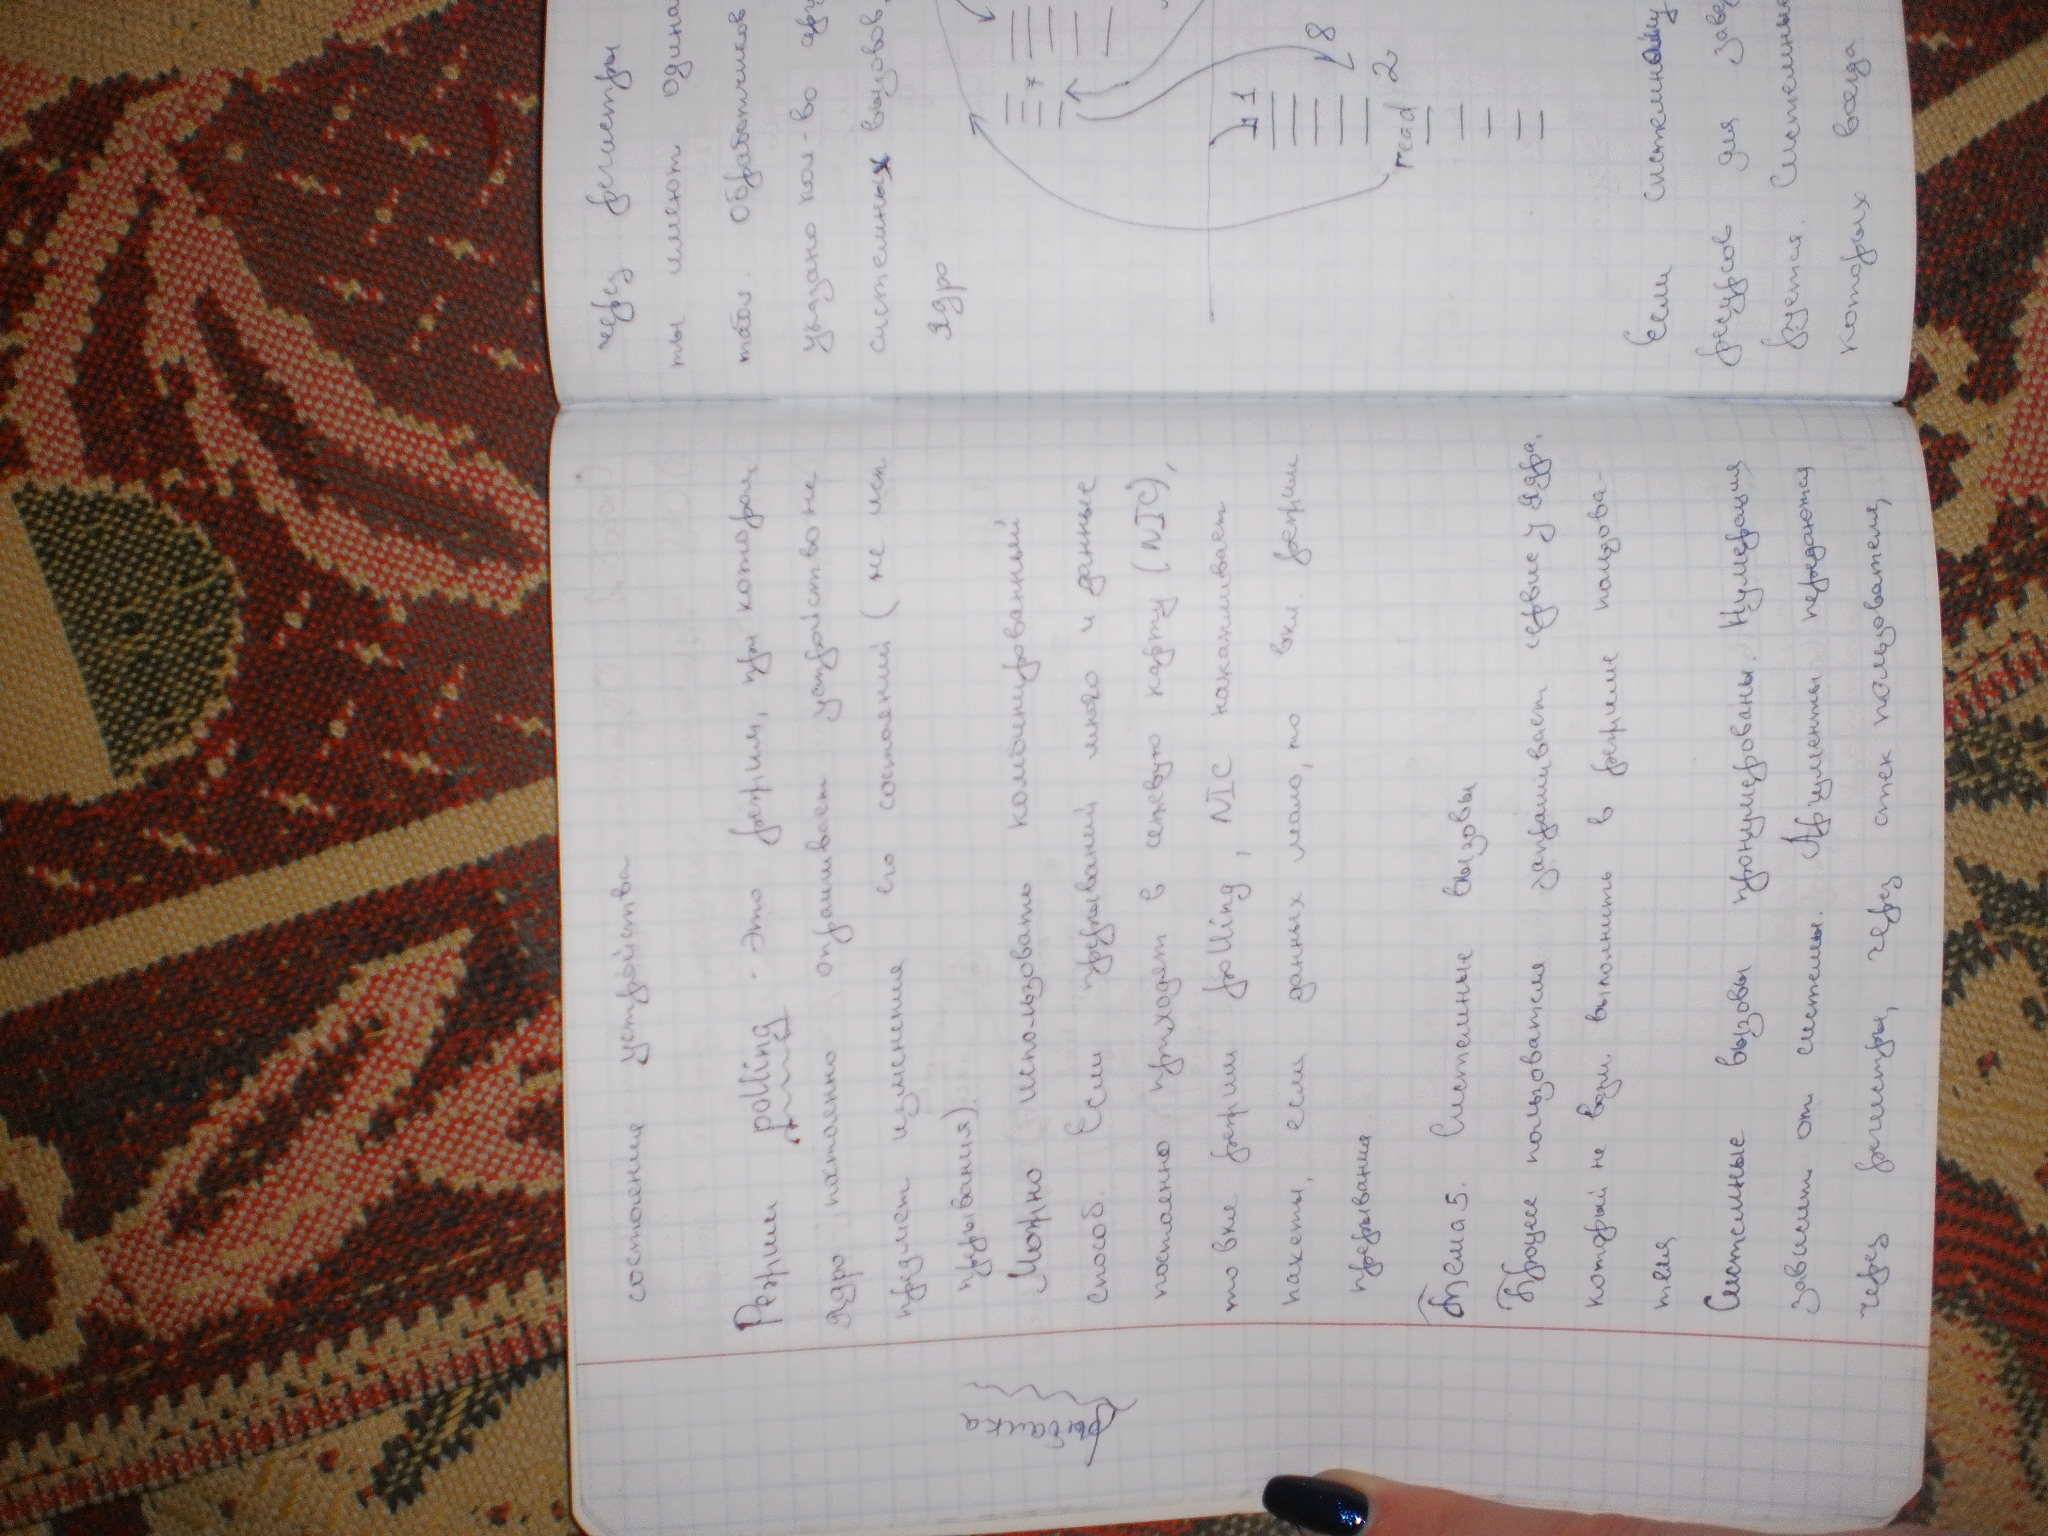 состояние устройства
Режим polling - это режим, при котором
ядро постоянно опрашивает устройство на
предмет изменения его состояний ( не исп.
прерывания).
Можно использовать комбинированный
способ. Если прерываний много и данные
постоянно приходят в сетевую карту (NIC),
то вкл режим polling, NIC накапливает
пакеты, если данных мало, то вкл. режим
прерывания
Тема 5. Системные вызовы
Процесс пользователя запрашивает сервис у ядра,
который не возм. выполнить в режиме пользова-
теля
Системные вызовы пронумерованы. Нумерация
зависит от системы. Аргументы передаются
через регистры, через стек пользователя,
через регистры
ты имеют одина
табл. Обработчиков
указано кол-во арг
системных вызовов,
ядро
1
8
read 2
Если системному
ресурсов для заве
руется. Системные
которых всегда